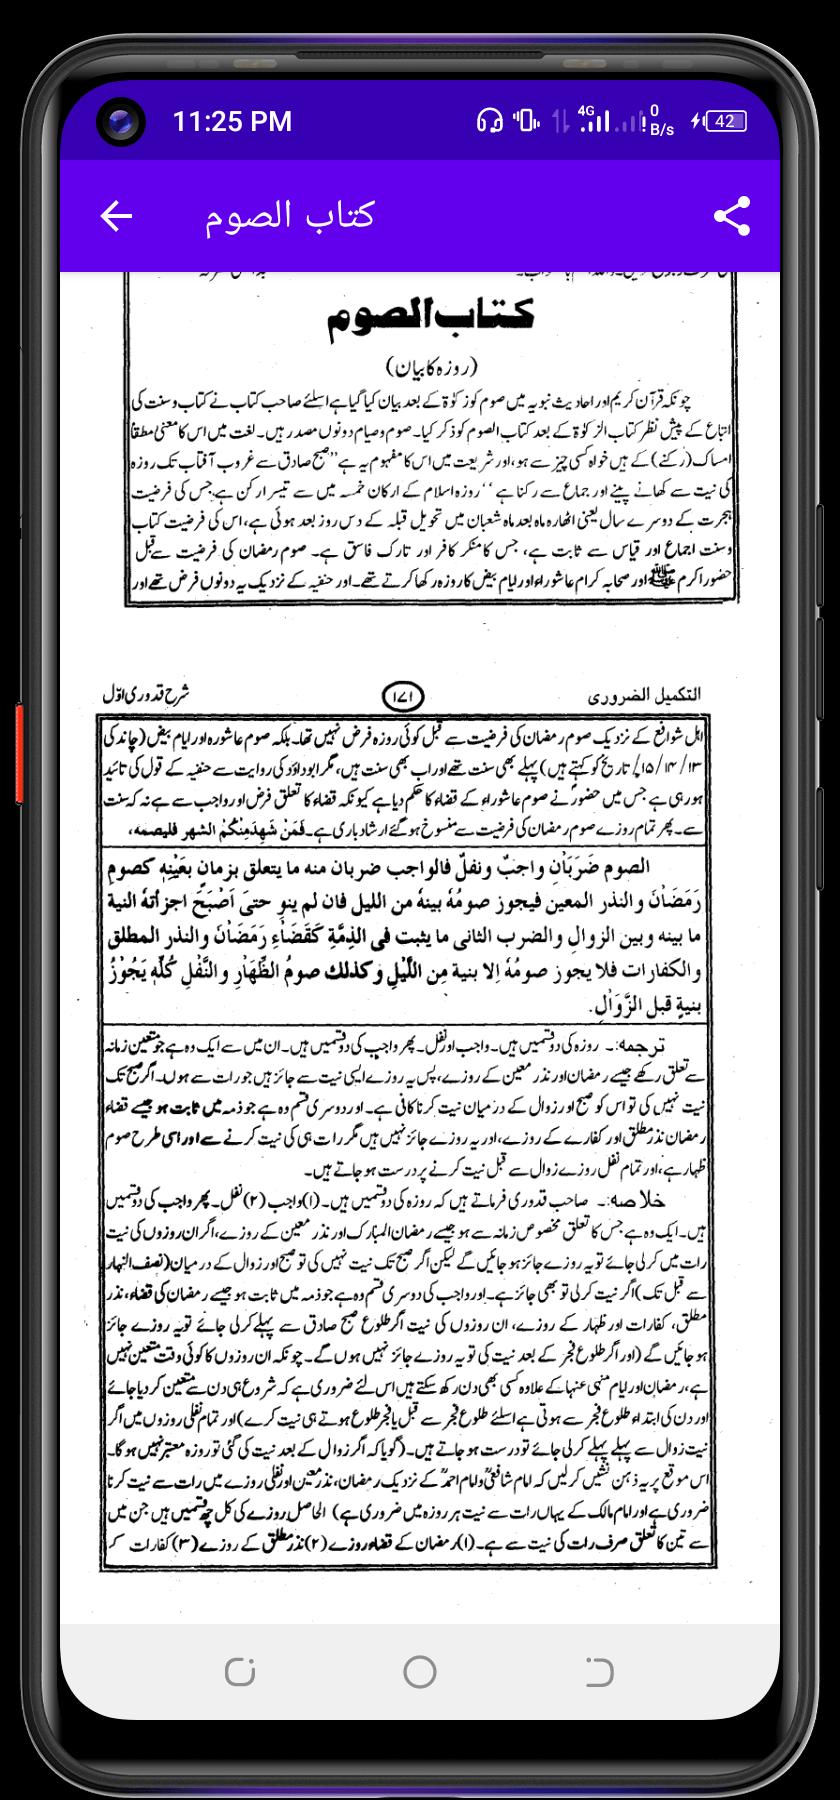 11:25 PM
4G
0
B/s
42
کتاب الصوم
کتاب الصوم
(روزہ کا بیان)
چونکہ قرآن کریم اور احادیث نبویہ میں صوم کو زکوٰۃ کے بعد بیان کیا گیا ہے اسلئے صاحب کتاب نے کتاب وسنت کی
اتباع کے پیش نظر کتاب الزکوٰۃ کے بعد کتاب الصوم کو ذکر کیا۔ صوم وصیام دونوں مصدر ہیں۔ لغت میں اس کا معنیٰ مطقاً
امساک (رکنے) کے ہیں خواہ کسی چیز سے ہو، اور شریعت میں اس کا مفہوم یہ ہے ’’صبح صادق سے غروب آفتاب تک روزہ
کی نیت سے کھانے پینے اور جماع سے رکنا ہے‘‘ روزہ اسلام کے ارکان خمسہ میں سے تیسرا رکن ہے جس کی فرضیت
ہجرت کے دوسرے سال یعنی اٹھارہ ماہ بعد ماہ شعبان میں تحویل قبلہ کے دس روز بعد ہوئی ہے، اس کی فرضیت کتاب
وسنت اجماع اور قیاس سے ثابت ہے، جس کا منکر کافر اور تارک فاسق ہے۔ صوم رمضان کی فرضیت سے قبل
حضور اکرم ﷺ اور صحابہ کرام عاشوراء اور ایام بیض کا روزہ رکھا کرتے تھے۔ اور حنفیہ کے نزدیک یہ دونوں فرض تھے اور
التکمیل الضروری
۱۷۱
شرح قدوری اوّل
اہل شوافع کے نزدیک صوم رمضان کی فرضیت سے قبل کوئی روزہ فرض نہیں تھا۔ بلکہ صوم عاشورہ اور ایام بیض (چاند کی
۱۳/ ۱۴/ ۱۵/ تاریخ کو کہتے ہیں) پہلے بھی سنت تھے اور اب بھی سنت ہیں، مگر ابوداؤد کی روایت سے حنفیہ کے قول کی تائید
ہو رہی ہے جس میں حضورؐ نے صوم عاشوراء کے قضاء کا حکم دیا ہے کیونکہ قضاء کا تعلق فرض اور واجب سے ہے نہ کہ سنت
سے۔ پھر تمام روزے صوم رمضان کی فرضیت سے منسوخ ہو گئے ارشاد باری ہے۔ فَمَنْ شَهِدَمِنْكُمُ الشهر فليصمه،
الصوم ضَرَبَانِ واجبٌ ونفلٌ فالواجب ضربان منه ما يتعلق بزمانٍ بعَيْنِهٖ كصومِ
رَمَضَانَ والنذر المعين فيجوز صومُهٗ بينهٗ من الليل فان لم ينوِ حتىٰ اَصْبَحَ اجزأتهُ النية
ما بينه وبين الزوالِ والضرب الثانى ما يثبت فى الذِمَّةِ كَقَضَاءِ رَمَضَانَ والنذر المطلق
والكفارات فلا يجوز صومُهٗ اِلا بنية مِن اللَّيْلِ وكذلك صومُ الظِّهَارِ والنَّفْلِ كُلِّهٖ يَجُوْزُ
بنيةٍ قبل الزَّوَالِ.
ترجمہ:۔ روزہ کی دو قسمیں ہیں۔ واجب اور نفل۔ پھر واجب کی دو قسمیں ہیں۔ ان میں سے ایک وہ ہے جو متعین زمانہ
سے تعلق رکھے جیسے رمضان اور نذر معین کے روزے، پس یہ روزے ایسی نیت سے جائز ہیں جو رات سے ہوں۔ اگر صبح تک
نیت نہیں کی تو اس کو صبح اور زوال کے درمیان نیت کرنا کافی ہے۔ اور دوسری قسم وہ ہے جو ذمہ میں ثابت ہو جیسے قضاء
رمضان نذر مطلق اور کفارے کے روزے، اور یہ روزے جائز نہیں ہیں مگر رات ہی کی نیت کرنے سے اور اسی طرح صوم
ظہار ہے، اور تمام نفل روزے زوال سے قبل نیت کرنے پر درست ہو جاتے ہیں۔
خلاصہ:۔ صاحب قدوری فرماتے ہیں کہ روزہ کی دو قسمیں ہیں۔ (۱) واجب (۲) نفل۔ پھر واجب کی دو قسمیں
ہیں۔ ایک وہ ہے جس کا تعلق مخصوص زمانہ سے ہو جیسے رمضان المبارک اور نذر معین کے روزے، اگر ان روزوں کی نیت
رات میں کرلی جائے تو یہ روزے جائز ہو جائیں گے لیکن اگر صبح تک نیت نہیں کی تو صبح اور زوال کے درمیان (نصف النہار
سے قبل تک) اگر نیت کرلی تو بھی جائز ہے۔ اور واجب کی دوسری قسم وہ ہے جو ذمہ میں ثابت ہو جیسے رمضان کی قضاء، نذر
مطلق، کفارات اور ظہار کے روزے، ان روزوں کی نیت اگر طلوع صبح صادق سے پہلے کرلی جائے تو یہ روزے جائز
ہو جائیں گے (اور اگر طلوع فجر کے بعد نیت کی تو یہ روزے جائز نہیں ہوں گے۔ چونکہ ان روزوں کا کوئی وقت متعین نہیں
ہے، رمضان اور ایام منہی عنہا کے علاوہ کسی بھی دن رکھ سکتے ہیں اس لئے ضروری ہے کہ شروع ہی دن سے متعین کردیا جائے
اور دن کی ابتداء طلوع فجر سے ہوتی ہے اسلئے طلوع فجر سے قبل یا فجر طلوع ہوتے ہی نیت کرے) اور تمام نفلی روزوں میں اگر
نیت زوال سے پہلے پہلے کرلی جائے تو درست ہو جاتے ہیں۔ (گویا کہ اگر زوال کے بعد نیت کی گئی تو روزہ معتبر نہیں ہوگا۔
اس موقع پر یہ ذہن نشیں کرلیں کہ امام شافعیؒ وامام احمدؒ کے نزدیک رمضان، نذر معین اور نفلی روزے میں رات سے نیت کرنا
ضروری ہے اور امام مالک کے یہاں رات سے نیت ہر روزہ میں ضروری ہے) الحاصل روزے کی کل چھ قسمیں ہیں جن میں
سے تین کا تعلق صرف رات کی نیت سے ہے۔ (۱) رمضان کے قضاء روزے (۲) نذر مطلق کے روزے (۳) کفارات کے